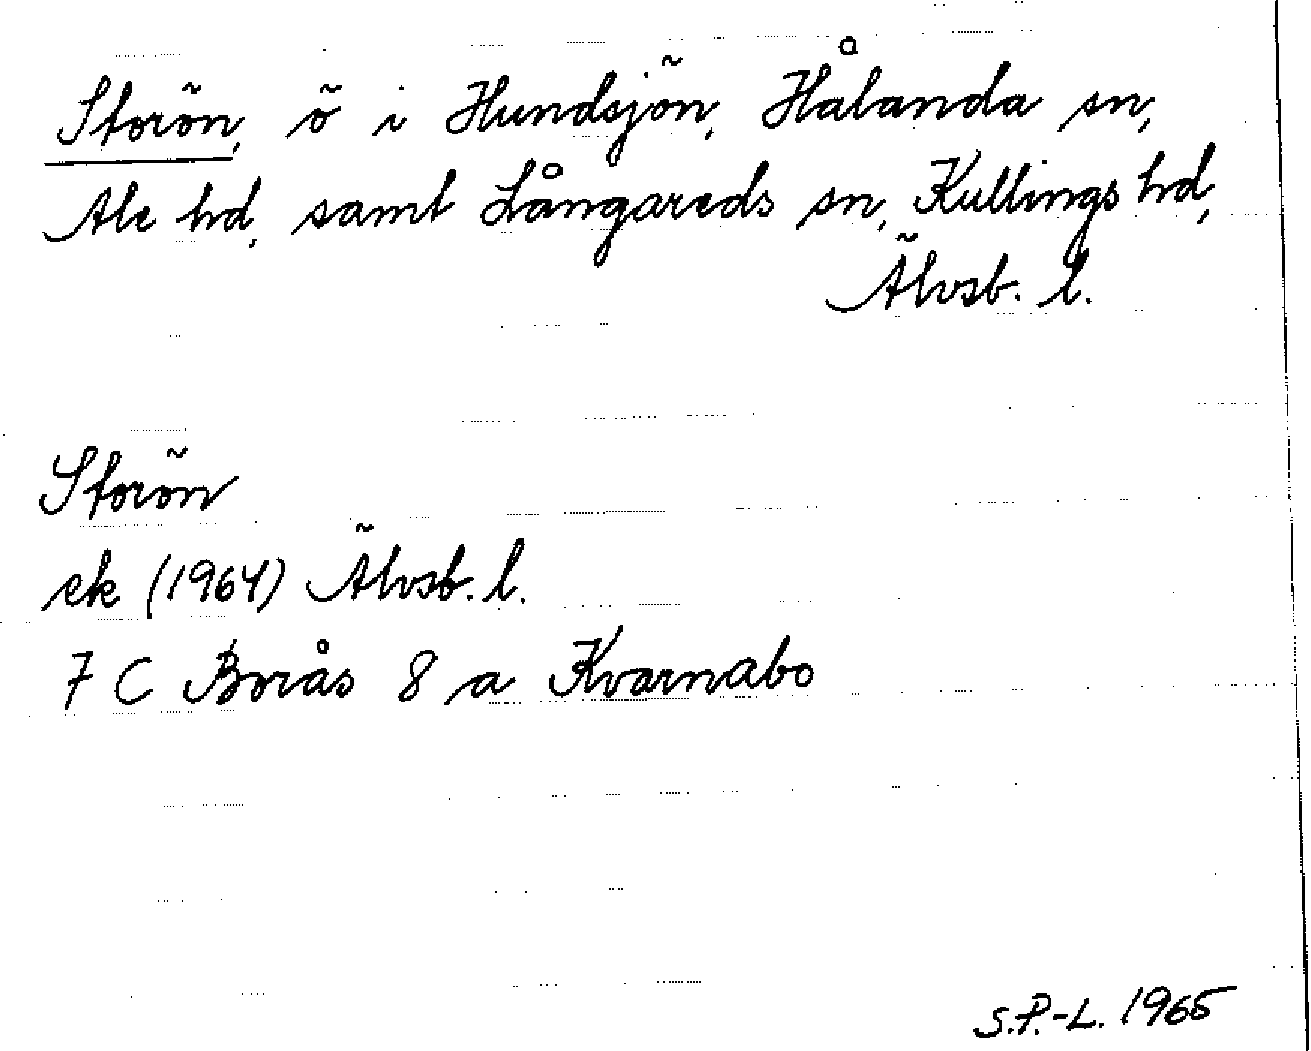 Storön, ö i Hundsjön, Hålanda sn,
Ale hd, samt Långareds sn, Kullings hd,
Älvsb. l.
Storön
ek (1964) Älvsb. l.
7 C Borås 8 a Kvarnabo
S.P.-L. 1965